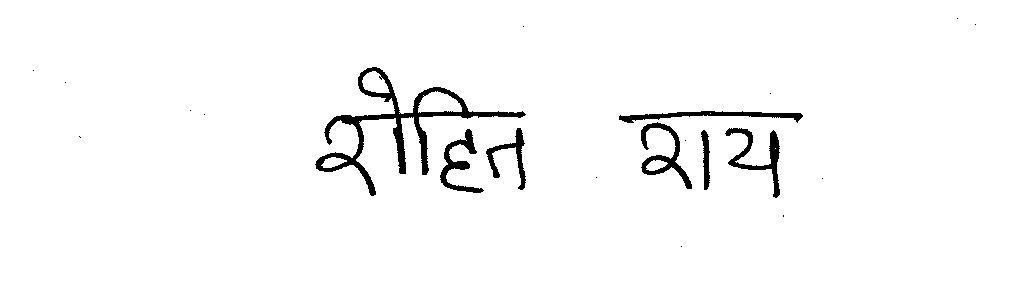 रोहित राय